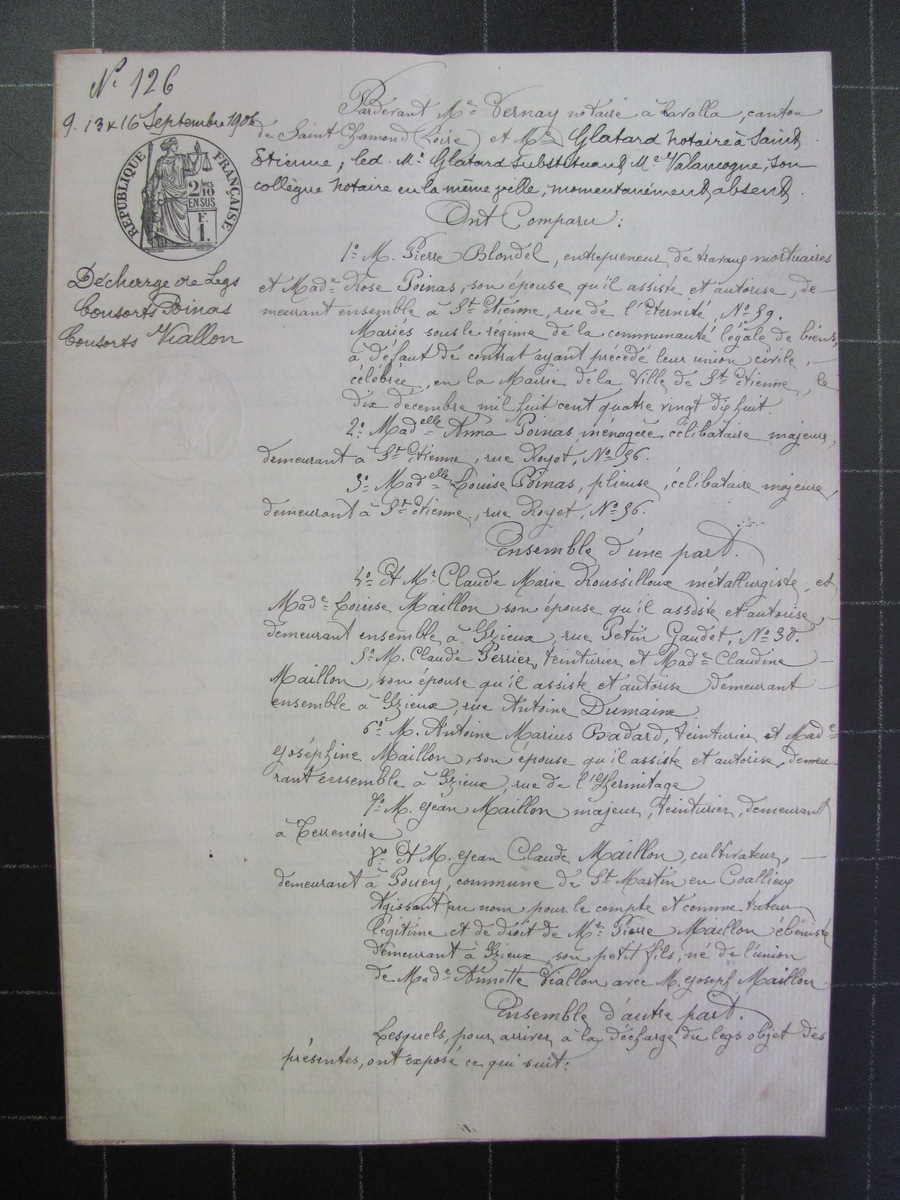 N° 126
9. 13 & 16 Septembre 1906
RÉPUBLIQUE FRANÇAISE
2/10 EN SUS
F. 1.
Décharge de Legs
Consorts Poinas
Consorts Viallon
Pardevant Me Vernay notaire à Lavalla, canton
de Saint Chamond (Loire) et Me Glatard notaire à Saint
Etienne, led. Me Glatard substituant Me Valancogne, son
collègue notaire en la même ville, momentanément absent.
Ont Comparu :
1° M. Pierre Blondel, entrepreneur de travaux mortuaires
et Made Rose Poinas, son épouse qu'il assiste et autorise, de-
meurant ensemble à St Etienne, rue de l'Eternité, No 59.
Mariés sous le régime de la communauté légale de biens,
à défaut de contrat ayant précédé leur union civile,
célébrée, en la Mairie de la Ville de St Etienne, le
dix décembre mil huit cent quatre vingt dix huit.
2° Madelle Anna Poinas ménagère célibataire majeure,
demeurant à St Etienne, rue Royet, No 56.
3° Madelle Louise Poinas, plieuse, célibataire majeure,
demeurant à St Etienne, rue Royet, No 56.
Ensemble d'une part.
4° Et Mr Claude Marie Roussilloux métallurgiste, et
Made Louise Maillon son épouse qu'il assiste et autorise,
demeurant ensemble à Izieux, rue Petin Gaudet, No 30.
5° M. Claude Perrier, teinturier et Made Claudine
Maillon, son épouse qu'il assiste et autorise demeurant
ensemble à Izieux, rue Antoine Dumaine
6° M. Antoine Marius Badard, teinturier, et Made
Joséphine Maillon, son épouse qu'il assiste et autorise, demeu-
rant ensemble à Izieux, rue de l'Hermitage
7° M. Jean Maillon majeur, teinturier, demeurant
à Terrenoire
8° Et M. Jean Claude Maillon, cultivateur,
demeurant à commune de St Martin en Coallieux
Agissant au nom pour le compte et comme tuteur
légitime et de droit de Mr Pierre Maillon ébéniste
demeurant à Izieux, son petit fils, né de l'union
de Made Annette Viallon avec M. Joseph Maillon
Ensemble d'autre part.
Lesquels, pour arriver à la décharge du legs objet des
présentes, ont exposé ce qui suit :